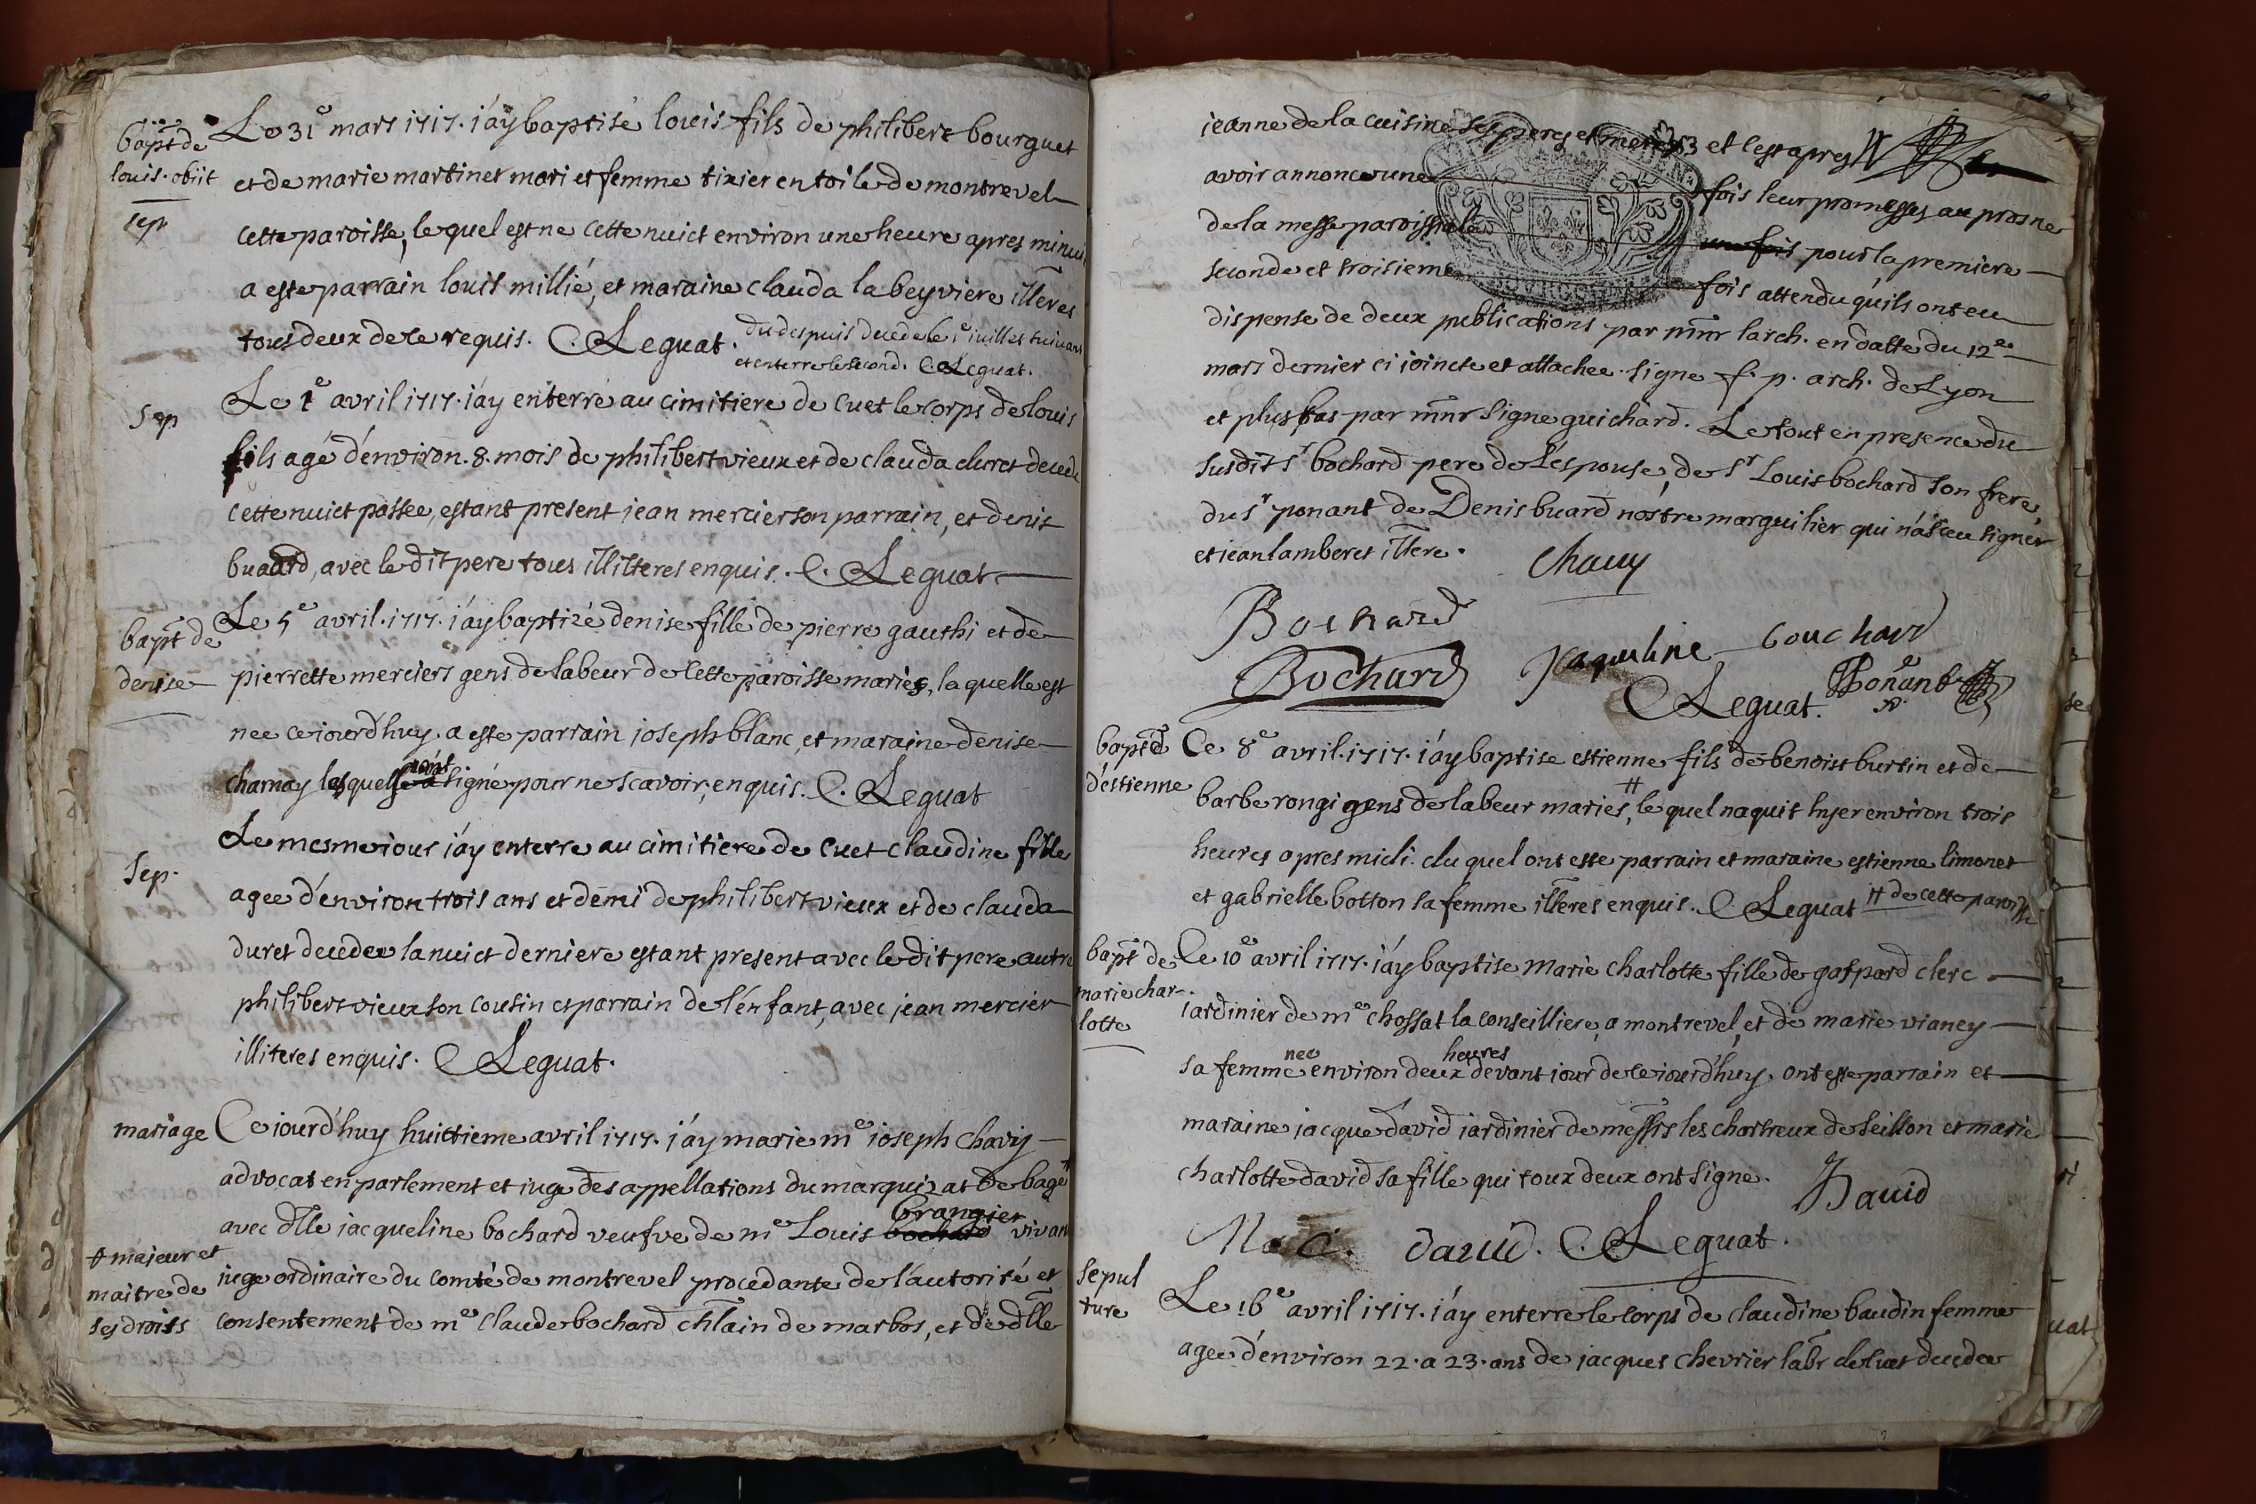 bapt de
louis. obiit
sep
Le 31e mars 1717. i'ay baptisé louis fils de philibert bourguet
et de marie martinet mari et femme tixier en toile de montrevel
cette paroisse, lequel est ne cette nuict environ une heure apres minui
a este parrain louis millié, et maraine clauda labeyviere illeres
tous deux de ce requis. C. Leguat.
du despuis decede le 1e iuillet suivant
et enterre le second. C. Leguat.
Sep
Le 1e avril 1717. i'ay enterré au cimitiere de Cuet le corps de louis
fils agé d'environ. 8. mois de philibert vieux et de clauda duret decede
cette nuict passée, estant present jean mercier son parrain, et denis
buard, avec le dit pere tous illiteres enquis. C. Leguat
bapt de
denise
Le 5e avril. 1717. i'ay baptizé denise fille de pierre gauthi et de
pierrette merciers gens de labeur de cette paroisse mariés, la quelle est
nee ce iourd'huy. a este parrain ioseph blanc, et maraine denise
charnay lesquels n'ont signé pour ne scavoir, enquis. C. Leguat
Sep.
Le mesme iour i'ay enterre au cimitiere de Cuet claudine fille
agee d'environ trois ans et demi de philibert vieux et de clauda
duret decedee la nuict derniere estant present avec le dit pere autre
philibert vieux son cousin et parrain de l'enfant, avec jean mercier
illiteres enquis. C. Leguat.
mariage
Ce iourd'huy huittieme avril 1717. i'ay marie me ioseph Chavy
advocat en parlement et iuge des appellations du marquizat de bagé
avec dlle jacqueline bochard veufve de me Louis bochard Grangier vivan
# majeur et
maitre de
ses droits
iuge ordinaire du comté de montrevel procedante de l'autorité et
consentement de me Claude bochard chlain de marbos, et de dlle
jeanne de la cuisine ses peres et meres et c'est apres
avoir annonce une fois leur promesses au prosne
de la messe paroissiale une fois pour la premiere
seconde et troisieme fois attendu qu'ils ont eu
dispense de deux publications par mnr l'arch. en datte du 12e
mars dernier ci joincte et attachee. signe f. p. arch. de Lyon
et plus bas par mnr signe guichard. Le tout en presence du
susdit sr bochard pere de l'espouse, de sr Louis bochard son frere,
du sr ponant de Denis buard nostre marguilier qui n'a sceu signer
et jean lamberet illere.
Chavy
Bochard
Jaqueline bouchard
Bochard
Ponant
C. Leguat.
bapt d
d'estienne
Ce 8e avril. 1717. i'ay baptise estienne fils de benoist burtin et de
barbe rongi gens de labeur mariés, # le quel naquit hyer environ trois
heures apres midi. du quel ont este parrain et maraine estienne limonet
et gabrielle botton sa femme illeres enquis. C. Leguat # de cette paroisse
bapt de
marie char-
lotte
Ce 10e avril 1717. i'ay baptise marie charlotte fille de gaspard clerc
iardinier de me chossat la conseilliere, a montrevel, et de marie vianey
sa femme nee environ deux heures devant jour de ce iourd'huy. ont este parrain et
maraine jacque david iardinier de messrs les chartreux de seillon et marie
charlotte david sa fille qui toux deux ont signe.
J David
Ma C. david. C. Leguat.
sepul
ture
Le 16e avril 1717. i'ay enterre le corps de claudine baudin femme
agee d'environ 22. a 23. ans de jacques chevrier labr de cuet decedee